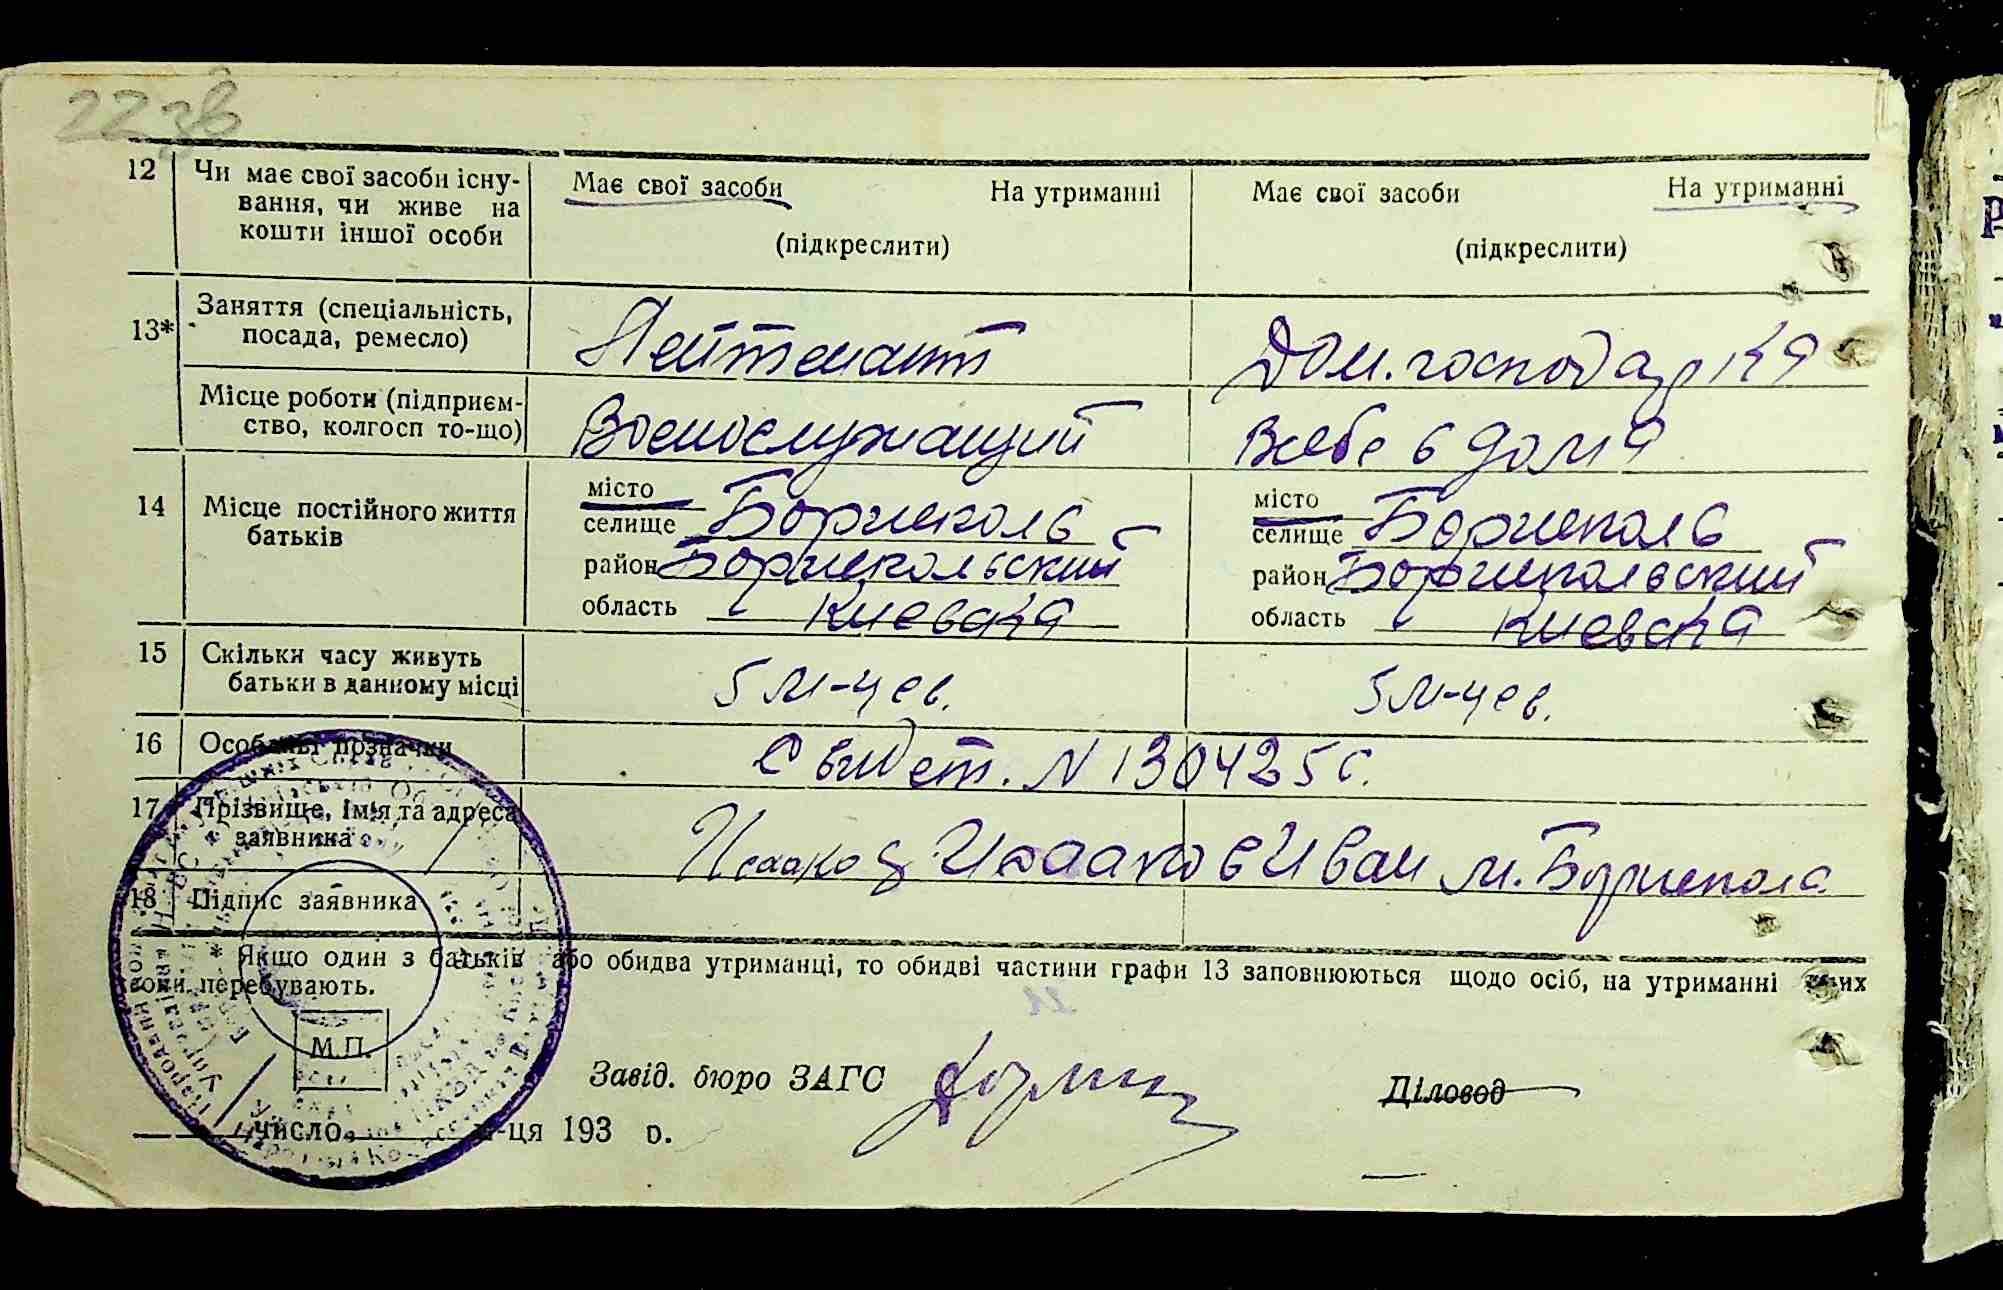 22 зв
12 Чи має свої засоби існу- Має свої засоби На утриманні Має свої засоби На утриманні
вання, чи живе на
кошти іншої особи (підкреслити) (підкреслити)
13* Заняття (спеціальність, Лейтенант Дом. господарка
посада, ремесло)
Місце роботи (підприєм- Военослужащий В себе в дома
ство, колгосп то-що)
14 Місце постійного життя місто місто
батьків селище Бориспколь селище Бориспколь
район Бориспкольский район Бориспкольский
область Киевска область Киевска
15 Скільки часу живуть 5 м-цев. 5 м-цев.
батьки в данному місці
16 Особливі позначки Свидет. N 130425 с.
17 Прізвище, ім'я та адреса Исааков Иван м. Борисполь
заявника
18 Підпис заявника
* Якщо один з батьків або обидва утриманці, то обидві частини графи 13 заповнюються щодо осіб, на утриманні яких
вони перебувають.
М.П.
Завід. бюро ЗАГС Діловод
число м-ця 193 р.